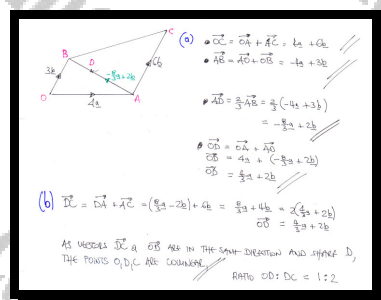 C
B
D
3b
-8/3 a + 2b
6b
O
4a
A
(a)
• OC = OA + AC = 4a + 6b
• AB = AO + OB = -4a + 3b
• AD = 2/3 AB = 2/3 (-4a + 3b)
= -8/3 a + 2b
• OD = OA + AD
OD = 4a + (-8/3 a + 2b)
OD = 4/3 a + 2b
(b) DC = DA + AC = (8/3 a - 2b) + 6b = 8/3 a + 4b = 2(4/3 a + 2b)
OD = 4/3 a + 2b
AS VECTORS DC & OD ARE IN THE SAME DIRECTION AND SHARE D,
THE POINTS O, D, C ARE COLLINEAR
RATIO OD : DC = 1 : 2